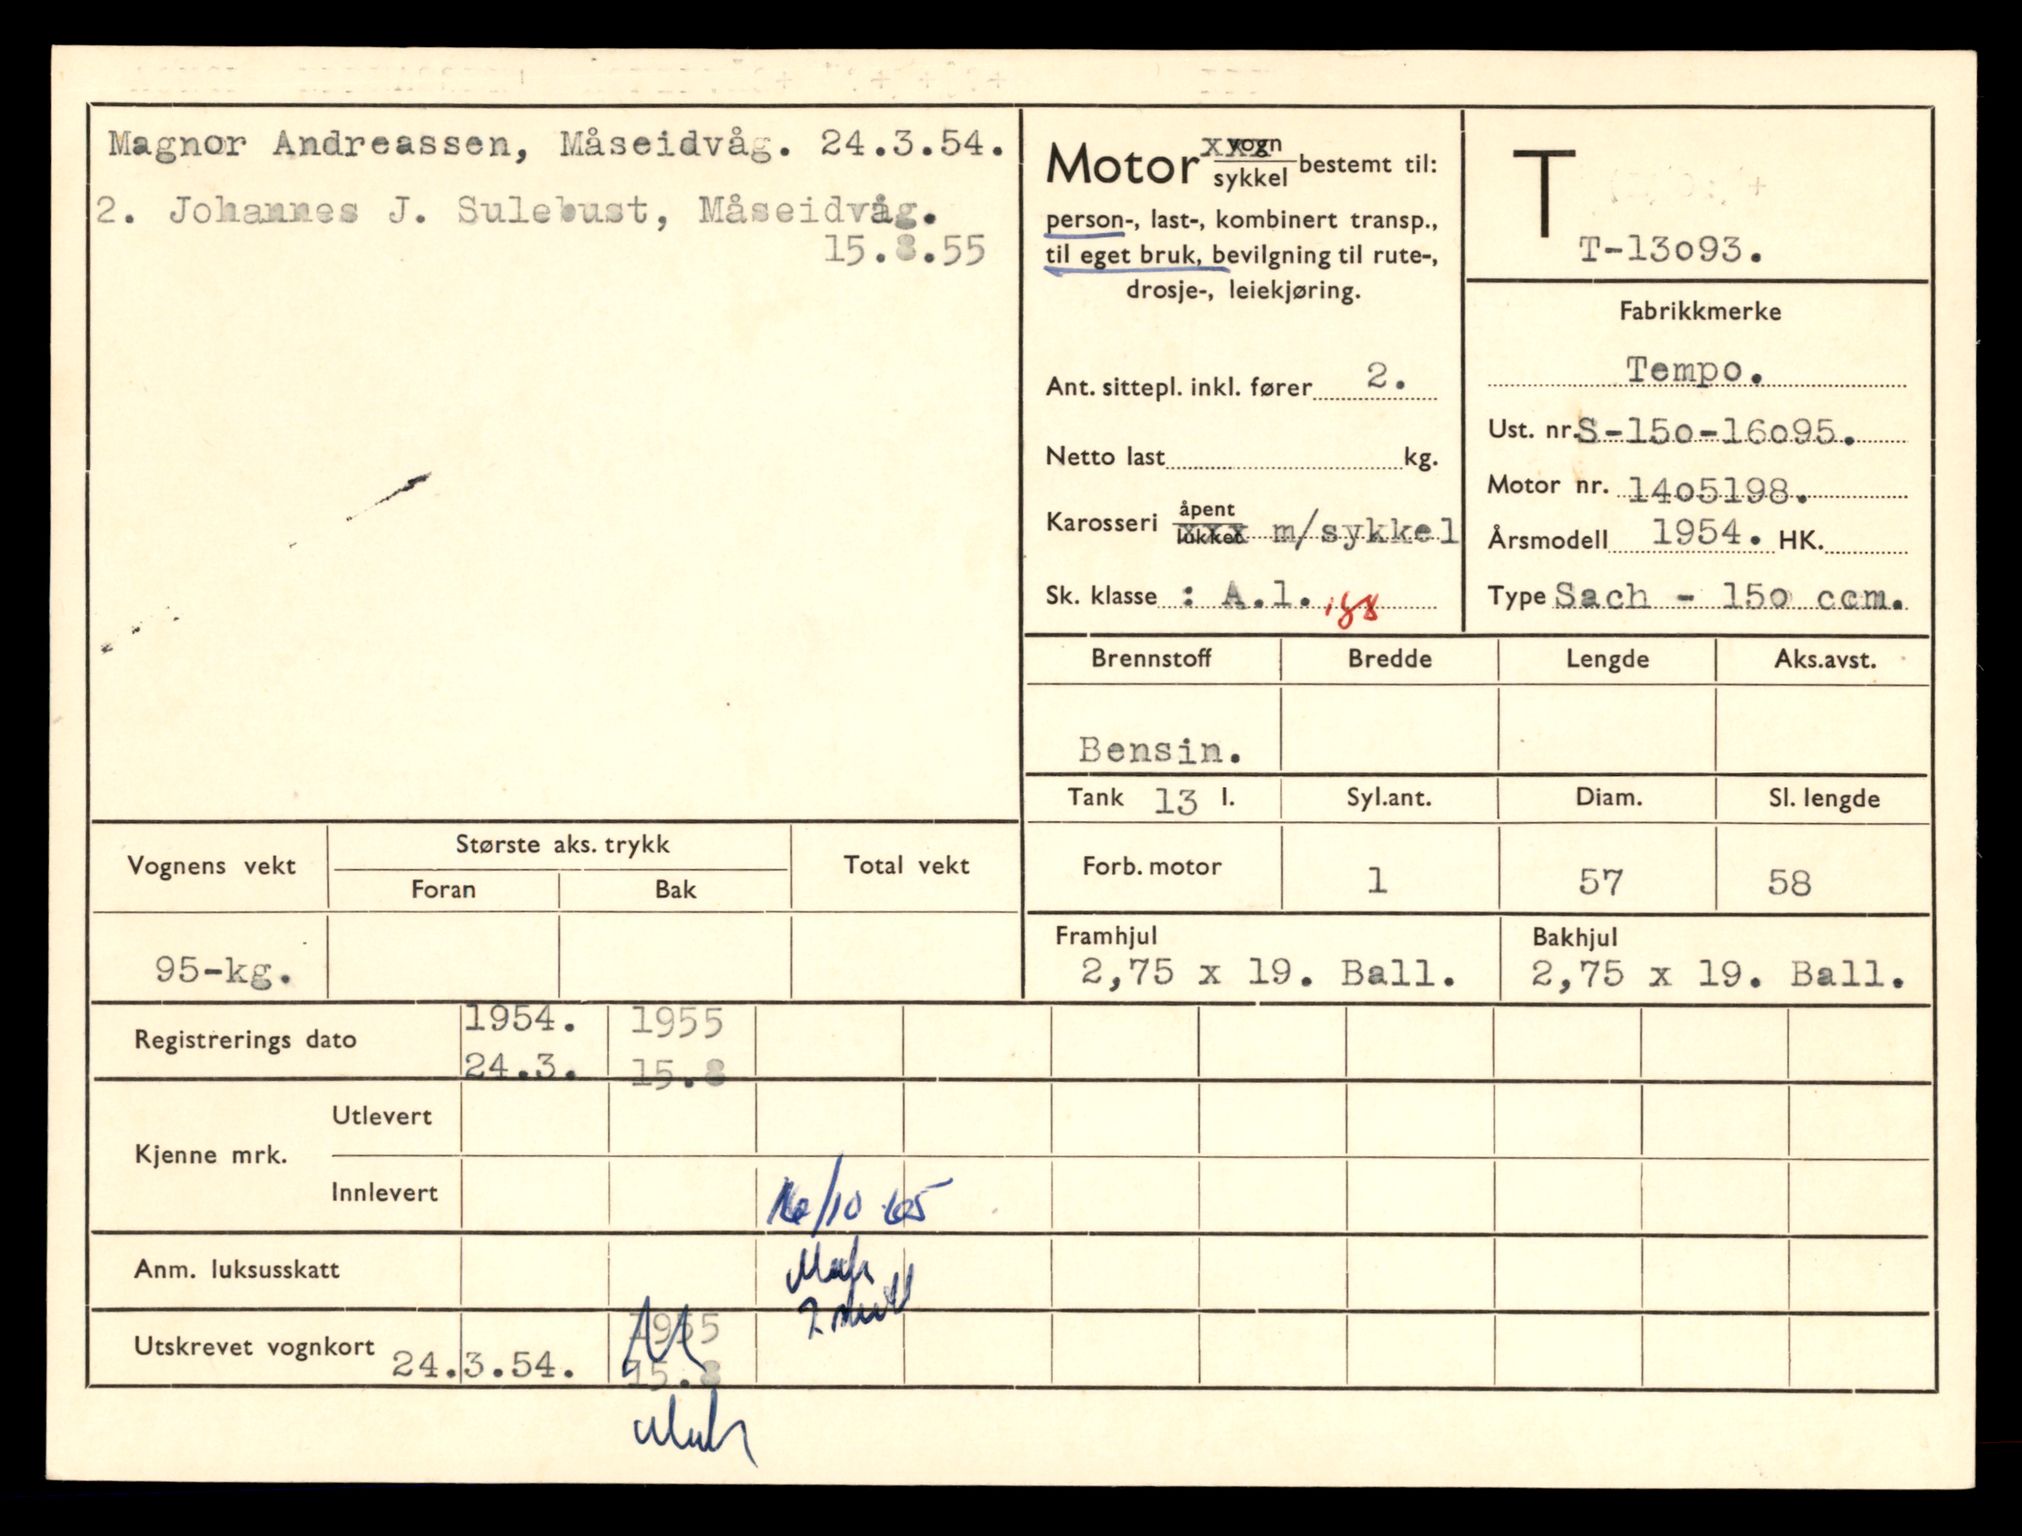 Magnor Andreassen, Måseidvåg. 24.3.54.
2. Johannes J. Sulebust, Måseidvåg.
15.8.55
Motor xxx vogn sykkel bestemt til:
person-, last-, kombinert transp.,
til eget bruk, bevilgning til rute-,
drosje-, leiekjøring.
Ant. sittepl. inkl. fører 2.
Netto last kg.
Karosseri åpent lukket xxx m/sykkel
Sk. klasse : A.l.
T
T-13o93.
Fabrikkmerke
Tempo.
Ust. nr. S-15o-16o95.
Motor nr. 14o5198.
Årsmodell 1954. HK.
Type Sach - 15o ccm.
Brennstoff Bredde Lengde Aks.avst.
Bensin.
Tank 13 l. Syl.ant. Diam. Sl. lengde
Forb. motor 1 57 58
Framhjul Bakhjul
2,75 x 19. Ball. 2,75 x 19. Ball.
Vognens vekt Største aks. trykk Total vekt
Foran Bak
95-kg.
Registrerings dato 1954. 1955
24.3. 15.8
Kjenne mrk. Utlevert
Innlevert 16/10 65
Anm. luksusskatt
Utskrevet vognkort 24.3.54. 1955
15.8